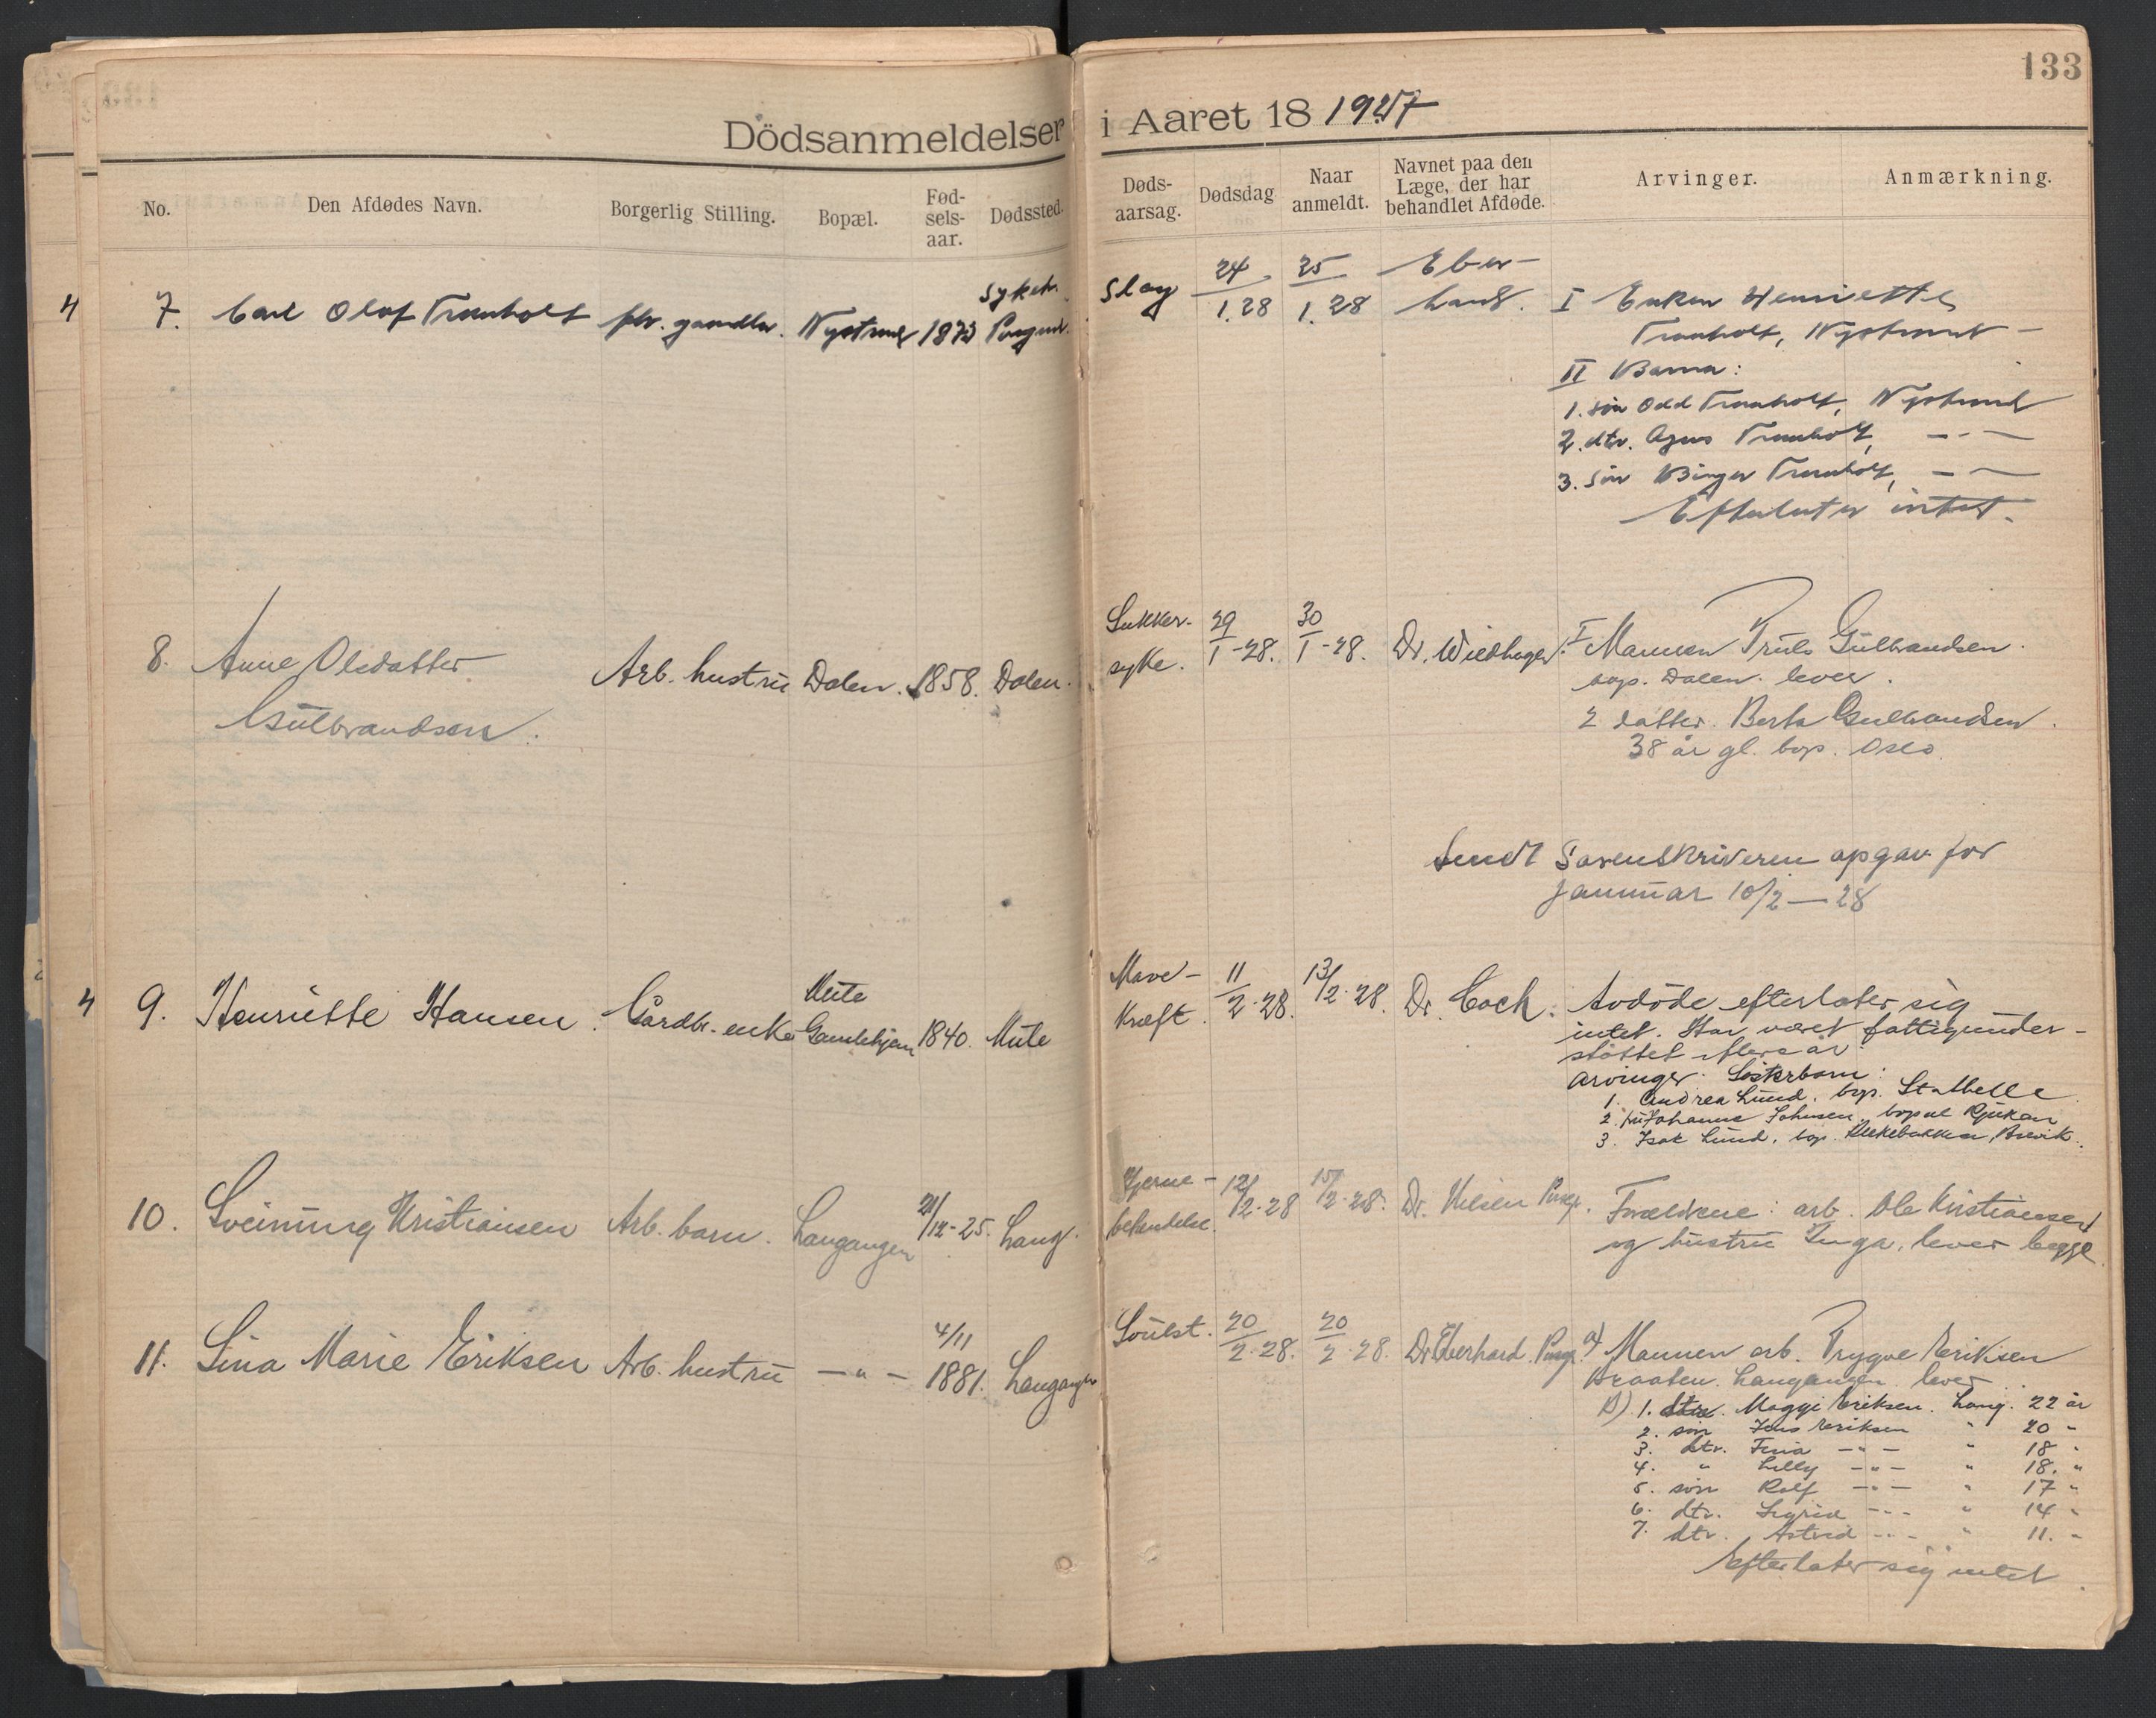 133
Dödsanmeldelser i Aaret 18 1927
No. Den Afdødes Navn. Borgerlig Stilling. Bopæl. Fød-sels-aar. Dødssted. Døds-aarsag. Dødsdag Naar anmeldt. Navnet paa den Læge, der har behandlet Afdøde. Arvinger. Anmærkning.
4 7. Carl Olaf Tromholt Nystrand 1873 Sykeh. Porsgrund. Slag 24/1.28 25/1.28 Eber-hard. I Enken Henriette
Tromholt, Nystrand
II Barna:
1. søn Odd Tromholt, Nystrand
2. dtr. Agnes Tromholt, - " -
3. søn Birger Tromholt, - " -
Efterlater intet.
8. Anne Olesdatter Arb. hustru Dalen. 1858. Dalen. Sukker-syke. 29/1-28. 30/1-28. Dr. Wiedhager. I Mannen Truls Gulbrandsen.
Gulbrandsen. bop. Dalen. lever.
2 datter. Berta Gulbrandsen.
38 år gl. bop. Oslo.
Sendt Sorenskriveren opgav for
januar 10/2 — 28
4 9. Henriette Hansen. Gårdbr. enke Mule Gamlehjem 1840. Mule Mave-kræft. 11/2-28. 13/2-28. Dr. Coch. Avdöde efterlater sig
intet. Har været fattigunder-
støttet flere år.
Arvinger: Søsterbarn:
1. Andrea Lund, bop. Stathelle
2. fru Johanne Johnsen, bopæl Rjukan
3. Isak Lund, bop. Brevik.
10. Sveinung Kristiansen Arb. barn. Langangen 21/12-25. Lang. Hjerne-betendelse. 12/2-28 15/2-28. Dr. Nilsen Porsgr. Forældrene: arb. Ole Kristiansen
og hustru Inga, lever begge.
11. Lina Marie Eriksen Arb. hustru - " - 4/11 1881. Langangen Svulst. 20/2-28. 20/2-28. Dr Eberhard Porsgr. a) Mannen arb. Trygve Eriksen
Braaten. Langangen. lever.
B) 1. dtr. Maggi Eriksen. Lang. 22 år
2. søn Jens Eriksen " 20 "
3. dtr. - " - " 18 "
4. " Lilly - " - " 18. "
5. søn Rolf - " - " 17 "
6. dtr. Sigrid - " - " 14 "
7. dtr. Astrid - " - " 11. "
Efterlater sig intet.